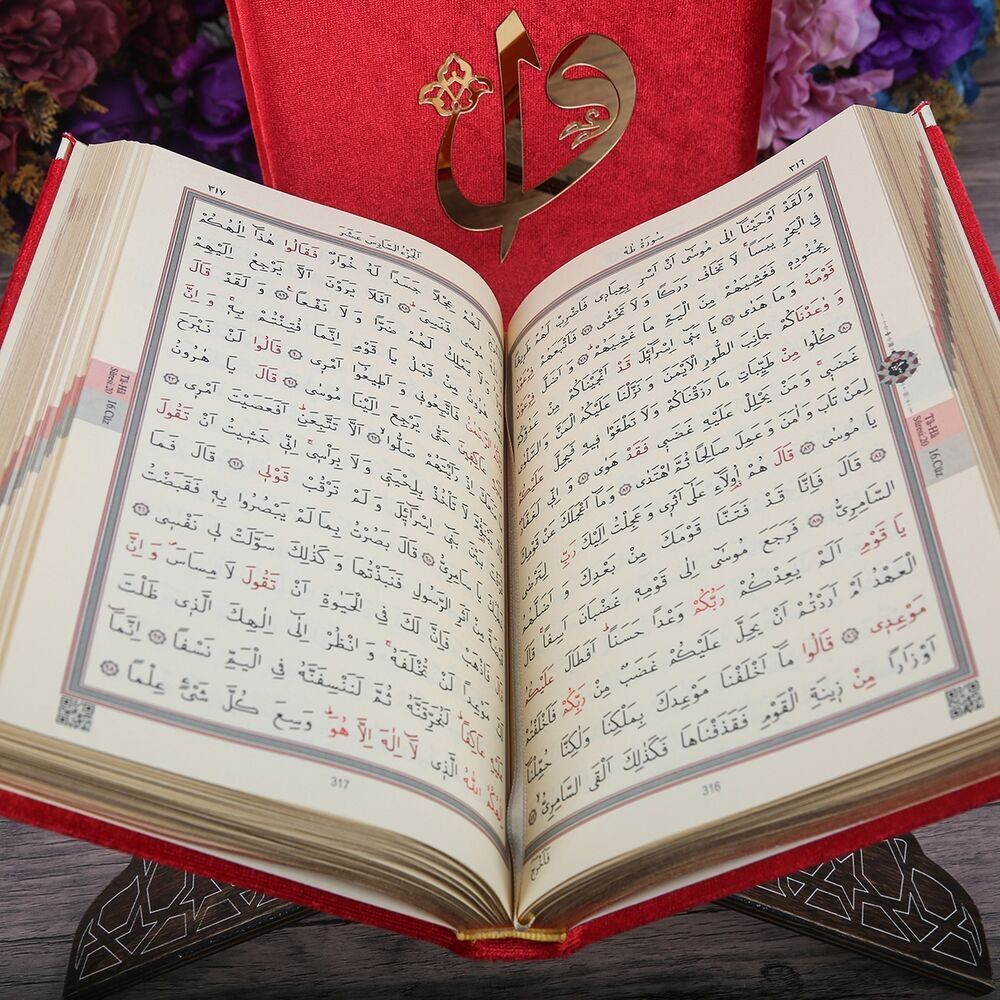 ٣١٦
سُورَةُ طٰهٰ
وَلَقَدْ اَوْحَيْنَٓا اِلٰى مُوسٰٓى اَنْ اَسْرِ بِعِبَاد۪ي فَاضْرِبْ لَهُمْ
فِي الْبَحْرِ يَبَساًۙ لَا تَخَافُ دَرَكاً وَلَا تَخْشٰى ﴿٧٧﴾ فَاَتْبَعَهُمْ
بِجُنُودِه۪ فَغَشِيَهُمْ مِنَ الْيَمِّ مَا غَشِيَهُمْۜ ﴿٧٨﴾ وَاَضَلَّ
قَوْمَهُ وَمَا هَدٰى ﴿٧٩﴾ يَا بَن۪ٓي اِسْرَٓائ۪لَ قَدْ اَنْجَيْنَاكُمْ مِنْ
وَوٰعَدْنَاكُمْ جَانِبَ الطُّورِ الْاَيْمَنَ وَنَزَّلْنَا عَلَيْكُمُ الْمَنَّ وَالسَّلْوٰى
﴿٨٠﴾ كُلُوا مِنْ طَيِّبَاتِ مَا رَزَقْنَاكُمْ وَلَا تَطْغَوْا ف۪يهِ فَيَحِلَّ عَلَيْكُمْ
غَضَب۪يۚ وَمَنْ يَحْلِلْ عَلَيْهِ غَضَب۪ي فَقَدْ هَوٰى ﴿٨١﴾ وَاِنّ۪ي لَغَفَّارٌ
لِمَنْ تَابَ وَاٰمَنَ وَعَمِلَ صَالِحاً ثُمَّ اهْتَدٰى ﴿٨٢﴾ وَمَٓا اَعْجَلَكَ عَنْ قَوْمِكَ
يَا مُوسٰى ﴿٨٣﴾ قَالَ هُمْ اُو۬لَٓاءِ عَلٰٓى اَثَر۪ي وَعَجِلْتُ اِلَيْكَ رَبِّ لِتَرْضٰى
﴿٨٤﴾ قَالَ فَاِنَّا قَدْ فَتَنَّا قَوْمَكَ مِنْ بَعْدِكَ وَاَضَلَّهُمُ
السَّامِرِيُّ ﴿٨٥﴾ فَرَجَعَ مُوسٰٓى اِلٰى قَوْمِه۪ غَضْبَانَ اَسِفاًۚ قَالَ
يَا قَوْمِ اَلَمْ يَعِدْكُمْ رَبُّكُمْ وَعْداً حَسَناًۜ اَفَطَالَ عَلَيْكُمُ
الْعَهْدُ اَمْ اَرَدْتُمْ اَنْ يَحِلَّ عَلَيْكُمْ غَضَبٌ مِنْ رَبِّكُمْ فَاَخْلَفْتُمْ
مَوْعِد۪ي ﴿٨٦﴾ قَالُوا مَٓا اَخْلَفْنَا مَوْعِدَكَ بِمَلْكِنَا وَلٰكِنَّا حُمِّلْنَٓا
اَوْزَاراً مِنْ ز۪ينَةِ الْقَوْمِ فَقَذَفْنَاهَا فَكَذٰلِكَ اَلْقَى السَّامِرِيُّ ﴿٨٧﴾
فَاَخْرَجَ
316
Tâ-Hâ
Sûresi:20
16.Cüz
٣١٧
اَلْجُزْءُ السَّادِسَ عَشَرَ
لَهُمْ عِجْلاً جَسَداً لَهُ خُوَارٌ فَقَالُوا هٰذَٓا اِلٰهُكُمْ
مُوسٰى فَنَسِيَۜ ﴿٨٨﴾ اَفَلَا يَرَوْنَ اَلَّا يَرْجِعُ اِلَيْهِمْ
يَمْلِكُ لَهُمْ ضَراًّ وَلَا نَفْعاً۟ ﴿٨٩﴾ وَلَقَدْ قَالَ
مِنْ قَبْلُ يَا قَوْمِ اِنَّمَا فُتِنْتُمْ بِه۪ۚ وَاِنَّ
الرَّحْمٰنُ فَاتَّبِعُون۪ي وَاَط۪يعُٓوا اَمْر۪ي ﴿٩٠﴾ قَالُوا لَنْ نَبْرَحَ
عَاكِف۪ينَ حَتّٰى يَرْجِعَ اِلَيْنَا مُوسٰى ﴿٩١﴾ قَالَ يَا هٰرُونُ
اِذْ رَاَيْتَهُمْ ضَلُّٓواۙ ﴿٩٢﴾ اَلَّا تَتَّبِعَنِۜ اَفَعَصَيْتَ اَمْر۪ي ﴿٩٣﴾
لَا تَأْخُذْ بِلِحْيَت۪ي وَلَا بِرَأْس۪يۚ اِنّ۪ي خَش۪يتُ اَنْ تَقُولَ
بَيْنَ بَن۪ٓي اِسْرَٓائ۪لَ وَلَمْ تَرْقُبْ قَوْل۪ي ﴿٩٤﴾ قَالَ فَمَا
يَا سَامِرِيُّ ﴿٩٥﴾ قَالَ بَصُرْتُ بِمَا لَمْ يَبْصُرُوا بِه۪ فَقَبَضْتُ
مِنْ اَثَرِ الرَّسُولِ فَنَبَذْتُهَا وَكَذٰلِكَ سَوَّلَتْ ل۪ي نَفْس۪ي ﴿٩٦﴾
فَاذْهَبْ فَاِنَّ لَكَ فِي الْحَيٰوةِ اَنْ تَقُولَ لَا مِسَاسَۖ وَاِنَّ
مَوْعِداً لَنْ تُخْلَفَهُۚ وَانْظُرْ اِلٰٓى اِلٰهِكَ الَّذ۪ي ظَلْتَ
عَاكِفاًۜ لَنُحَرِّقَنَّهُ ثُمَّ لَنَنْسِفَنَّهُ فِي الْيَمِّ نَسْفاً ﴿٩٧﴾ اِنَّمَٓا
اِلٰهُكُمُ اللّٰهُ الَّذ۪ي لَٓا اِلٰهَ اِلَّا هُوَۜ وَسِعَ كُلَّ شَيْءٍ عِلْماً ﴿٩٨﴾
317
Tâ-Hâ
Sûresi:20
16.Cüz